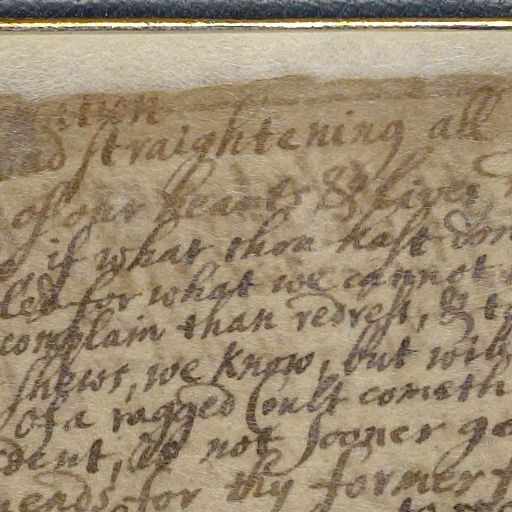 straightening all
of our hearts & lives
if what thou hast don
led for what we cannot
complain than redress, &
shews, we know, but wild
of a ragged Coult cometh
dent, do not sooner ge
ends for thy former